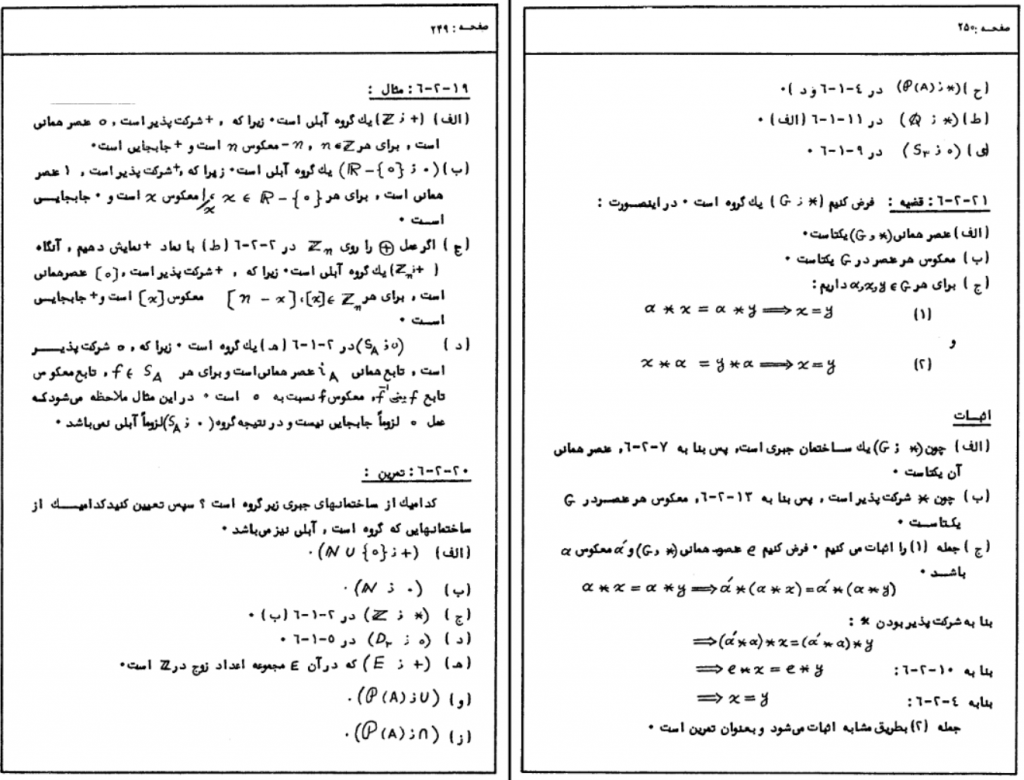 صفحه : ۲۴۹
۱۹-۲-۶ : مثال :
(الف) (ℤ ; +) یك گروه آبلی است۰ زیرا كه , + شركت پذیر است , 0 عنصر همانی
است , برای هر n ∈ ℤ , -n معكوس n است و + جابجایی است۰
(ب) (ℝ - {0} ; ۰) یك گروه آبلی است۰ زیرا كه , ۰ شركت پذیر است , ۱ عنصر
همانی است , برای هر x ∈ ℝ - {0} , 1/x معكوس x است و ۰ جابجایی
است ۰
(ج) اگر عمل ⊕ را روی ℤₙ در ۲-۲-۶ (ط) با نماد + نمایش دهیم , آنگاه
(ℤₙ ; +) یك گروه آبلی است۰ زیرا كه , + شركت پذیر است , [0] عنصر همانی
است , برای هر [x] ∈ ℤₙ , [n - x] معكوس [x] است و + جابجایی
است ۰
(د) (S_A ; o) در ۲-۱-۶ (هـ) یك گروه است ۰ زیرا كه , o شركت پذیر
است , تابع همانی i_A عنصر همانی است و برای هر f ∈ S_A , تابع معكوس
تابع f یعنی f⁻¹ , معكوس f نسبت به o است ۰ در این مثال ملاحظه می‌شود كه
عمل o لزوماً جابجایی نیست و در نتیجه گروه (S_A ; o) لزوماً آبلی نمی‌باشد ۰
۲۰-۲-۶ : تمرین :
كدامیك از ساختمانهای جبری زیر گروه است ؟ سپس تعیین كنید كدامیك از
ساختمانهایی كه گروه است , آبلی نیز می‌باشد ۰
(الف) (ℕ ∪ {0} ; +) ۰
(ب) (ℕ ; ۰) ۰
(ج) (ℤ ; *) در ۲-۱-۶ (ب) ۰
(د) (D₃ ; o) در ۵-۱-۶ ۰
(هـ) (E ; +) كه در آن E مجموعه اعداد زوج در ℤ است۰
(و) (P(A) ; ∪) ۰
(ز) (P(A) ; ∩) ۰
صفحه : ۲۵۰
(ح) (P(A) ; *) در ۴-۱-۶ (د) ۰
(ط) (ℚ ; *) در ۱۱-۱-۶ (الف) ۰
(ی) (S₃ ; o) در ۹-۱-۶ ۰
۲۱-۲-۶ : قضیه : فرض كنیم (G ; *) یك گروه است ۰ در اینصورت :
(الف) عنصر همانی (G , *) یكتاست۰
(ب) معكوس هر عنصر در G یكتاست ۰
(ج) برای هر a,x,y ∈ G داریم :
(۱) a * x = a * y ⟹ x = y
و
(۲) x * a = y * a ⟹ x = y
اثبات
(الف) چون (G ; *) یك ساختمان جبری است, پس بنا به ۷-۲-۶, عنصر همانی
آن یكتاست ۰
(ب) چون * شركت پذیر است , پس بنا به ۱۳-۲-۶, معكوس هر عنصر در G
یكتاست ۰
(ج) جمله (۱) را اثبات می كنیم ۰ فرض كنیم e عنصر همانی (G , *) و a′ معكوس a
باشد ۰
a * x = a * y ⟹ a′ * (a * x) = a′ * (a * y)
بنا به شركت پذیر بودن * :
⟹ (a′ * a) * x = (a′ * a) * y
بنا به ۱۰-۲-۶ : ⟹ e * x = e * y
بنا به ۴-۲-۶ : ⟹ x = y
جمله (۲) بطریق مشابه اثبات می‌شود و بعنوان تمرین است ۰